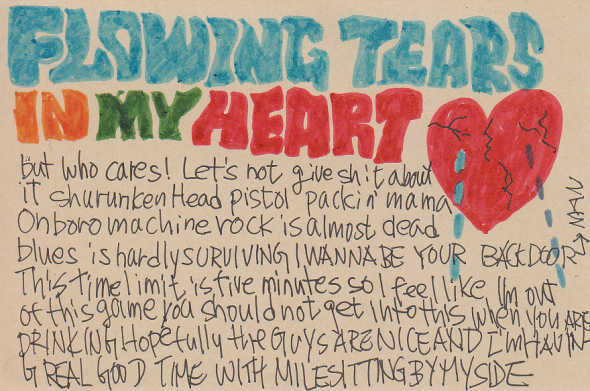 FLOWING TEARS
IN MY HEART
but who cares! Let's not give sh!t about
it shurunken Head pistol packin' mama
Onboro machine rock is almost dead
blues is hardly SURVIVING I WANNA BE YOUR BACKDOOR → MAN
This time limit is five minutes so I feel like I'm out
of this game you should not get into this when you ARE
DRINKING Hopefully the GUYS ARE NICE AND I'm HAVIN
G REAL GOOD TIME WITH MILE SITTING BY MY SIDE